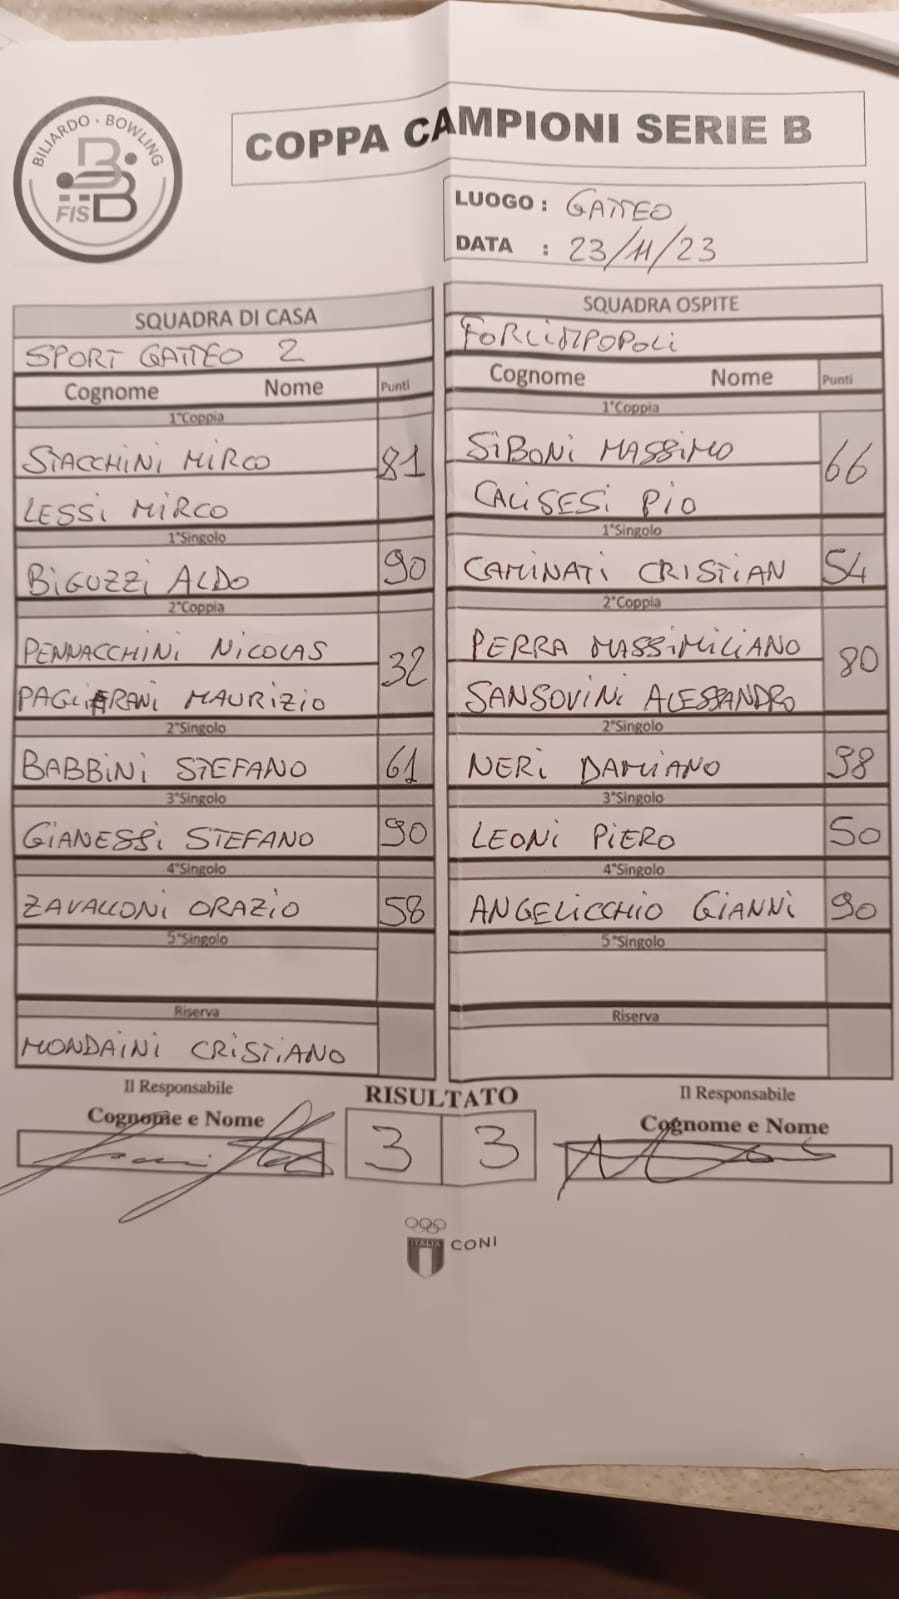 BILIARDO - BOWLING
FISBB
COPPA CAMPIONI SERIE B
LUOGO : GATTEO
DATA : 23/11/23
SQUADRA DI CASA
SPORT GATTEO 2
Cognome Nome Punti
1°Coppia
STACCHINI MIRCO 81
LESSI MIRCO
1°Singolo
BIGUZZI ALDO 90
2°Coppia
PENNACCHINI NICOLAS 32
PAGLIERANI MAURIZIO
2°Singolo
BABBINI STEFANO 61
3°Singolo
GIANESSI STEFANO 90
4°Singolo
ZAVALLONI ORAZIO 58
5°Singolo
Riserva
MONDAINI CRISTIANO
SQUADRA OSPITE
FORLIMPOPOLI
Cognome Nome Punti
1°Coppia
SIBONI MASSIMO 66
CALISESI PIO
1°Singolo
CAMINATI CRISTIAN 54
2°Coppia
PERRA MASSIMILIANO 80
SANSOVINI ALESSANDRO
2°Singolo
NERI DAMIANO 98
3°Singolo
LEONI PIERO 50
4°Singolo
ANGELICCHIO GIANNI 90
5°Singolo
Riserva
Il Responsabile
Cognome e Nome
RISULTATO
3 3
Il Responsabile
Cognome e Nome
ITALIA
CONI